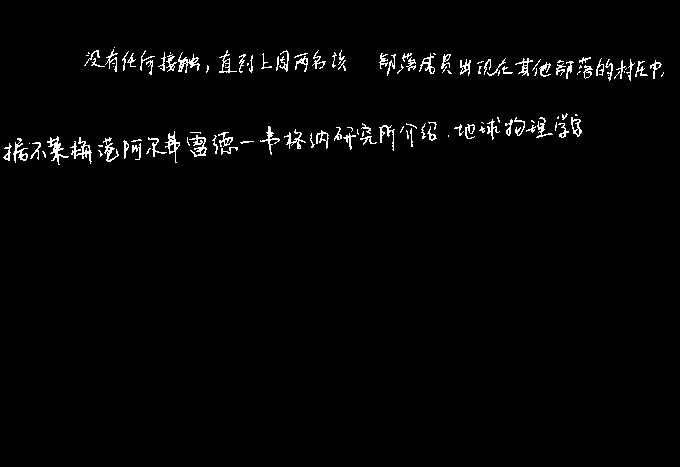 没有任何接触，直到上周两名该 部落成员出现在其他部落的村庄中，
据不莱梅港阿尔弗雷德一韦格纳研究所介绍．地球物理学家